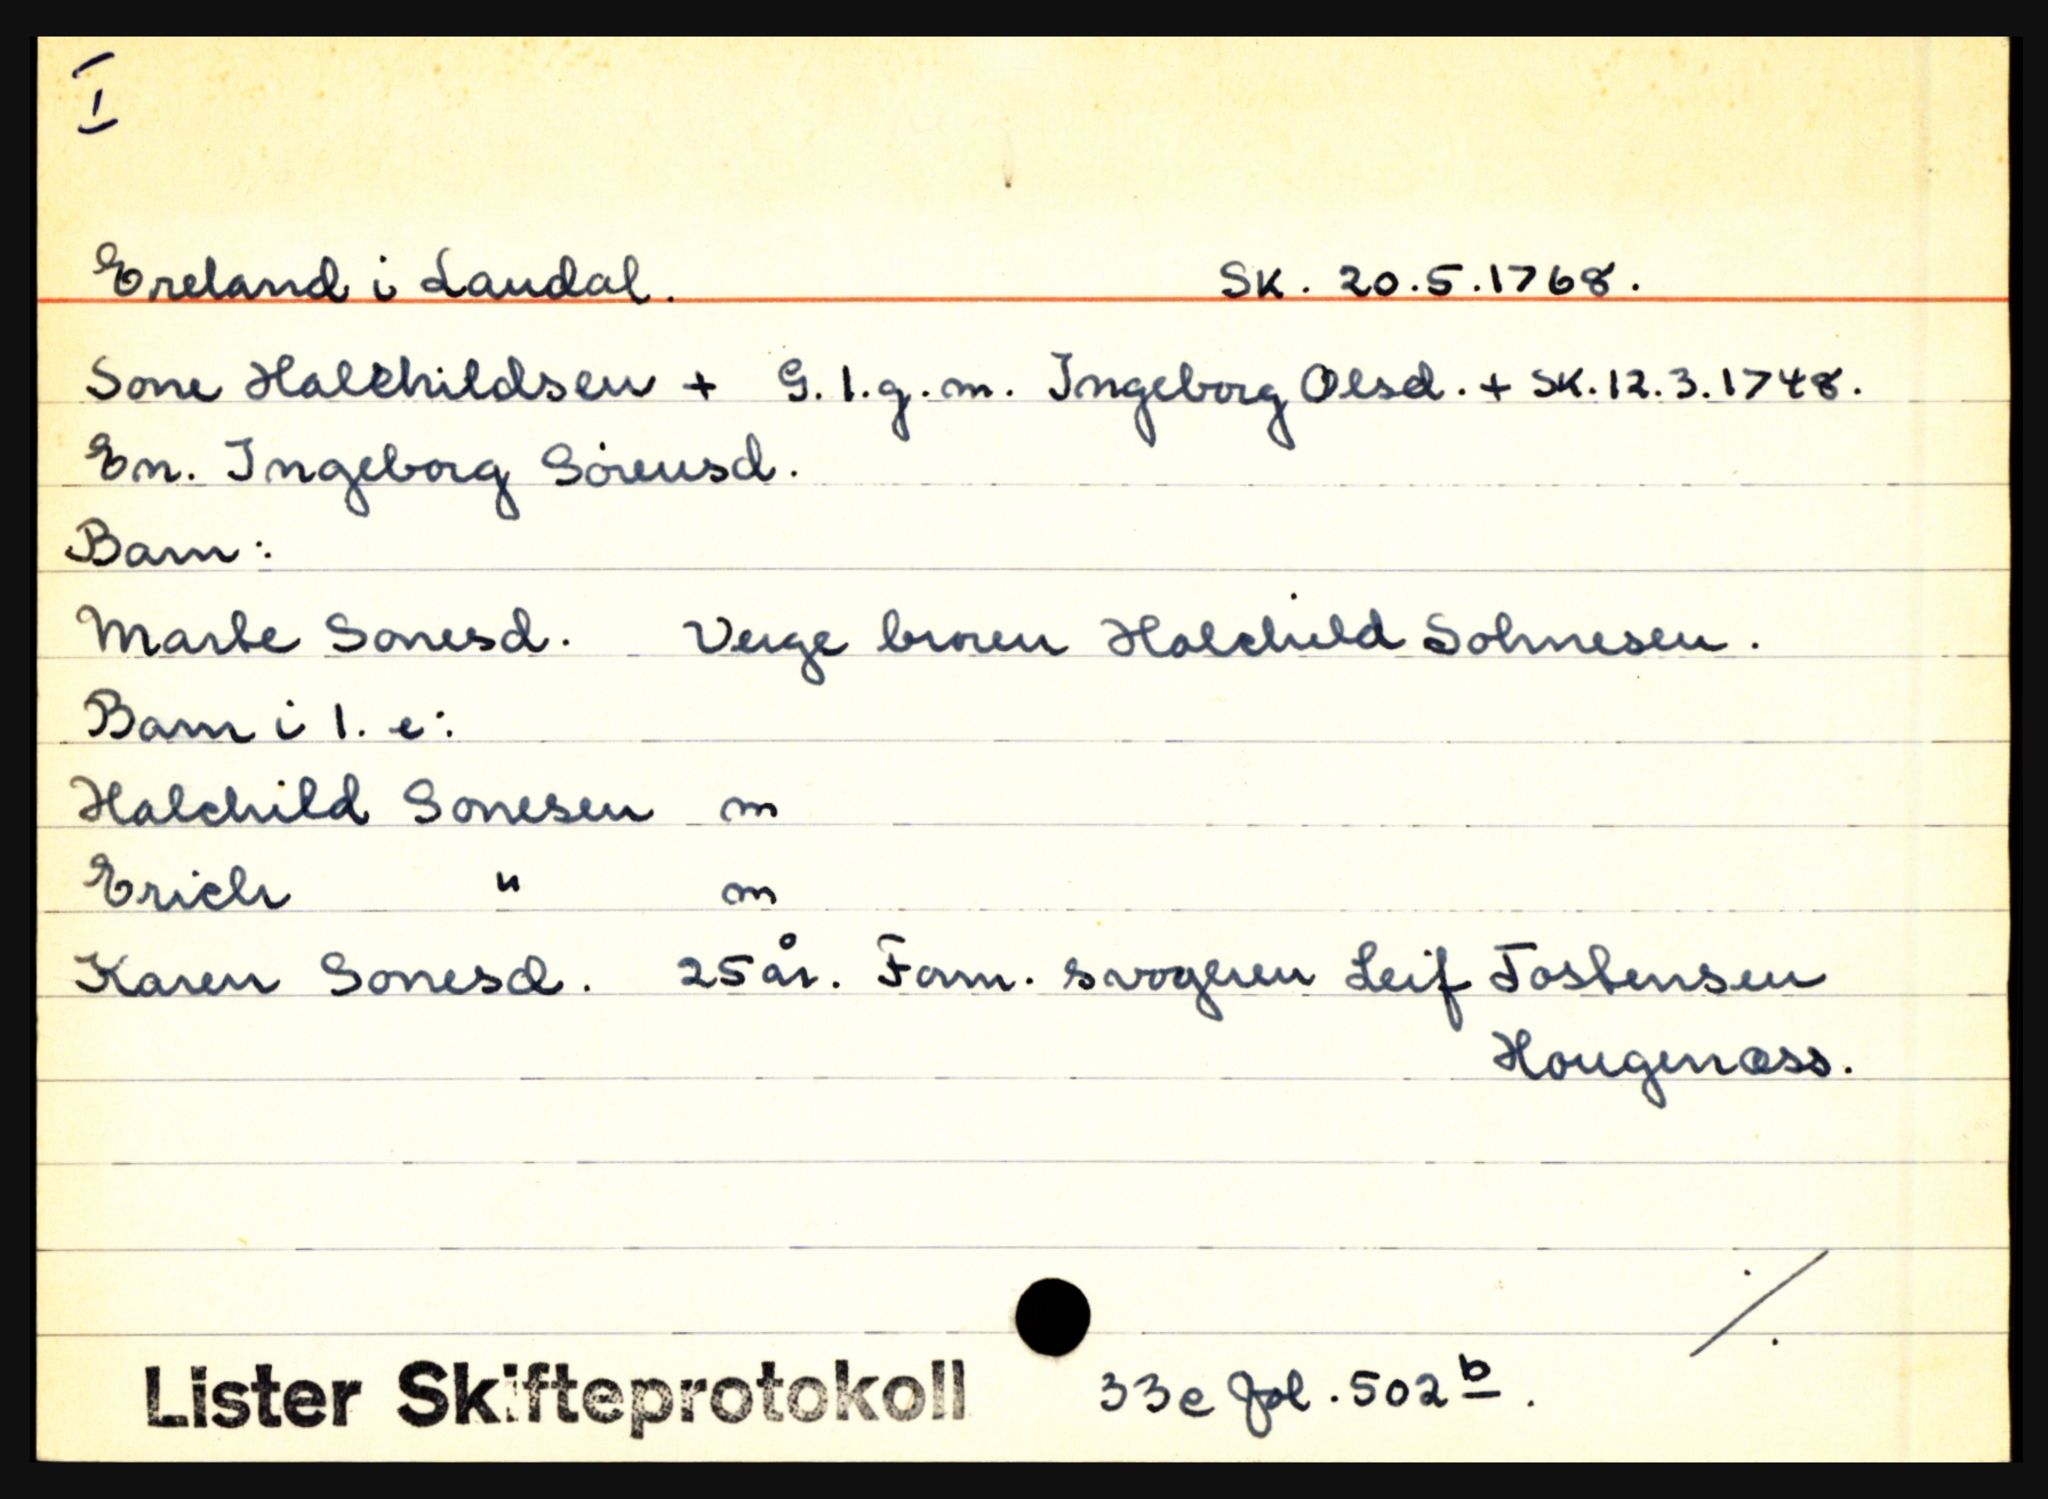 I
Ereland i Laudal. SK. 20.5.1768.
Sone Halchildsen + G. 1. g. m. Ingeborg Olsd. + SK. 12.3.1748.
En. Ingeborg Sørensd.
Barn:
Marte Sonesd. Verge broren Halchild Sohnesen.
Barn i 1. e:
Halchild Sonesen m
Erich " m
Karen Sonesd. 25 år. Form. svogeren Leif Tostensen
Hougenæss.
Lister Skifteprotokoll 33c fol. 502 b.